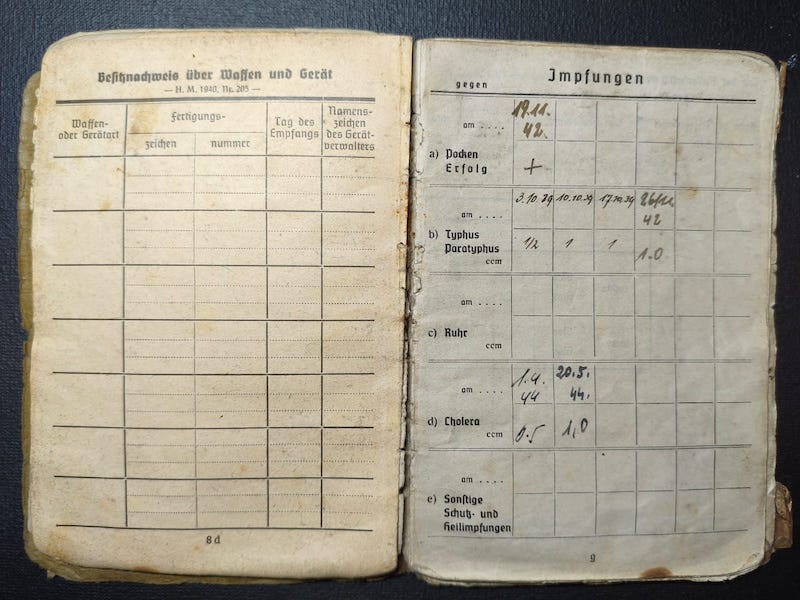 Besitznachweis über Waffen und Gerät
— H. M. 1940, Nr. 205 —
Waffen-
oder Gerätart
Fertigungs-
zeichen
nummer
Tag des
Empfangs
Namens-
zeichen
des Gerät-
verwalters
8d
Impfungen
gegen
am . . . .
19.11.
42.
a) Pocken
Erfolg
+
am . . . .
3.10.39 10.10.39 17.10.39
42
b) Typhus
Paratyphus
ccm
1/2 1 1 1.0
am . . . .
c) Ruhr
ccm
am . . . .
1.4. 20.5.
44 44.
d) Cholera
ccm
0.5 1,0
am . . . .
e) Sonstige
Schutz- und
Heilimpfungen
9